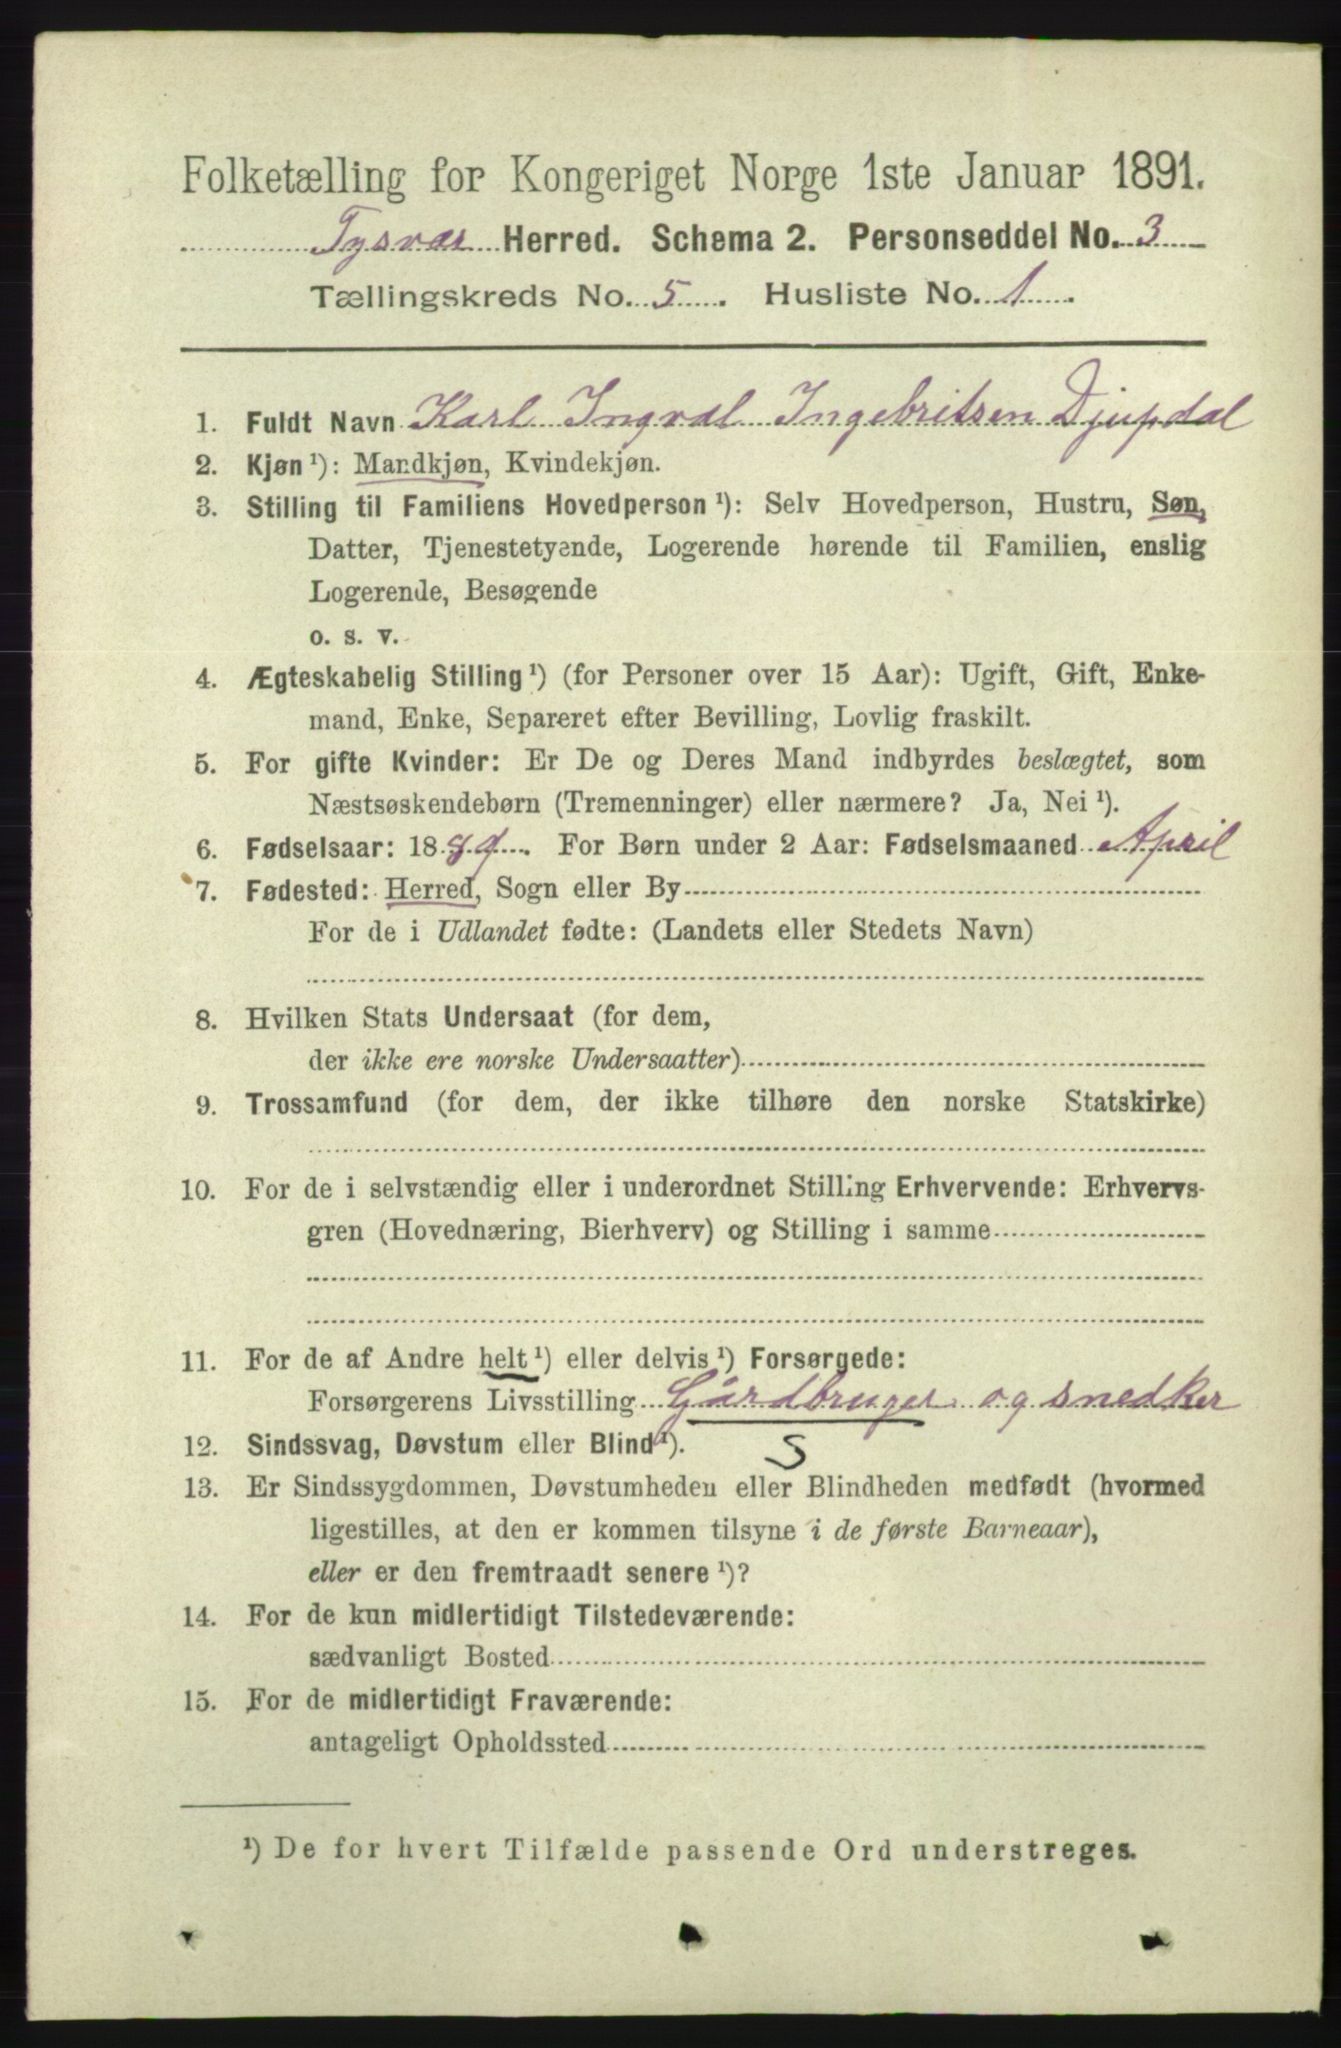 Folketælling for Kongeriget Norge 1ste Januar 1891.
Tysvær Herred. Schema 2. Personseddel No. 3
Tællingskreds No. 5. Husliste No. 1.
1. Fuldt Navn Karl Ingval Ingebritsen Djupdal
2. Kjøn ¹): Mandkjøn, Kvindekjøn.
3. Stilling til Familiens Hovedperson ¹): Selv Hovedperson, Hustru, Søn,
Datter, Tjenestetyende, Logerende hørende til Familien, enslig
Logerende, Besøgende
o. s. v.
4. Ægteskabelig Stilling ¹) (for Personer over 15 Aar): Ugift, Gift, Enke-
mand, Enke, Separeret efter Bevilling, Lovlig fraskilt.
5. For gifte Kvinder: Er De og Deres Mand indbyrdes beslægtet, som
Næstsøskendebørn (Tremenninger) eller nærmere? Ja, Nei ¹).
6. Fødselsaar: 1889. For Børn under 2 Aar: Fødselsmaaned April
7. Fødested: Herred, Sogn eller By
For de i Udlandet fødte: (Landets eller Stedets Navn)
8. Hvilken Stats Undersaat (for dem,
der ikke ere norske Undersaatter)
9. Trossamfund (for dem, der ikke tilhøre den norske Statskirke)
10. For de i selvstændig eller i underordnet Stilling Erhvervende: Erhvervs-
gren (Hovednæring, Bierhverv) og Stilling i samme
11. For de af Andre helt ¹) eller delvis ¹) Forsørgede:
Forsørgerens Livsstilling Gårdbruger og snedker
12. Sindssvag, Døvstum eller Blind ¹). S
13. Er Sindssygdommen, Døvstumheden eller Blindheden medfødt (hvormed
ligestilles, at den er kommen tilsyne i de første Barneaar),
eller er den fremtraadt senere ¹)?
14. For de kun midlertidigt Tilstedeværende:
sædvanligt Bosted
15. For de midlertidigt Fraværende:
antageligt Opholdssted
¹) De for hvert Tilfælde passende Ord understreges.